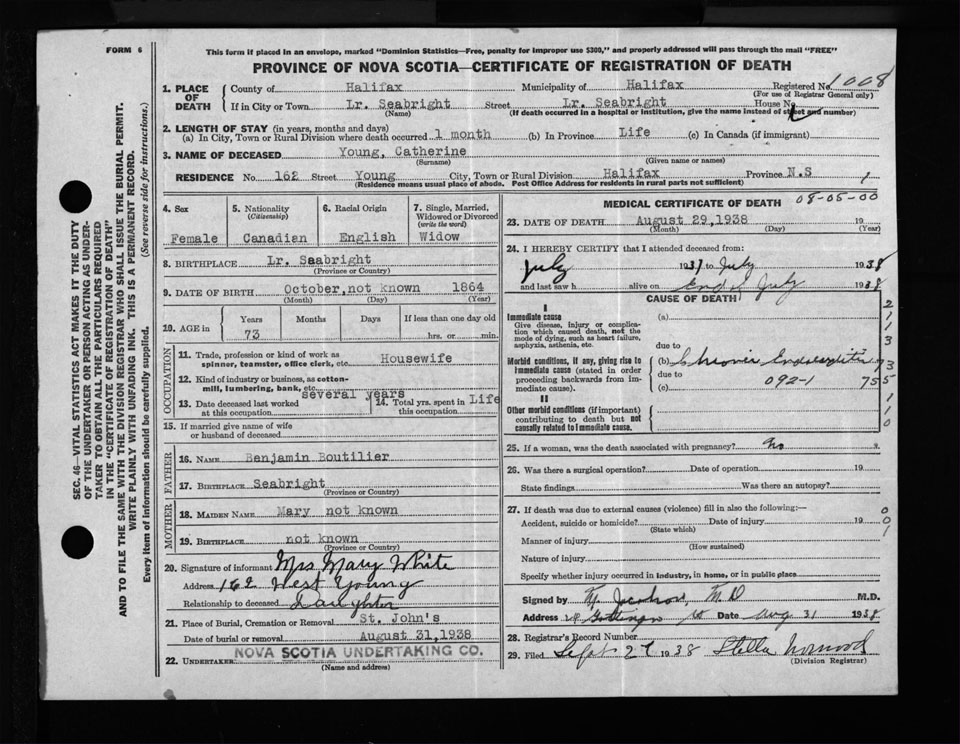 FORM 6
This form if placed in an envelope, marked "Dominion Statistics—Free, penalty for improper use $300," and properly addressed will pass through the mail "FREE"
PROVINCE OF NOVA SCOTIA—CERTIFICATE OF REGISTRATION OF DEATH
SEC. 46—VITAL STATISTICS ACT MAKES IT THE DUTY
OF THE UNDERTAKER OR PERSON ACTING AS UNDER-
TAKER TO OBTAIN ALL THE PARTICULARS REQUIRED
IN THE "CERTIFICATE OF REGISTRATION OF DEATH"
AND TO FILE THE SAME WITH THE DIVISION REGISTRAR WHO SHALL ISSUE THE BURIAL PERMIT.
WRITE PLAINLY WITH UNFADING INK. THIS IS A PERMANENT RECORD.
Every item of information should be carefully supplied. (See reverse side for instructions.)
1. PLACE OF DEATH County of Halifax Municipality of Halifax Registered No. 1008
(For use of Registrar General only)
If in City or Town Lr. Seabright Street Lr. Seabright House No
(Name) (If death occurred in a hospital or institution, give the name instead of street and number)
2. LENGTH OF STAY (in years, months and days)
(a) In City, Town or Rural Division where death occurred 1 month (b) In Province Life (c) In Canada (if immigrant)
3. NAME OF DECEASED Young, Catherine
(Surname) (Given name or names)
RESIDENCE No. 162 Street Young City, Town or Rural Division Halifax Province N.S 1
(Residence means usual place of abode. Post Office Address for residents in rural parts not sufficient)
4. Sex Female
5. Nationality (Citizenship) Canadian
6. Racial Origin English
7. Single, Married, Widowed or Divorced (write the word) Widow
8. BIRTHPLACE Lr. Seabright
(Province or Country)
9. DATE OF BIRTH October, not known 1864
(Month) (Day) (Year)
10. AGE in Years 73 Months Days If less than one day old hrs. or min.
OCCUPATION
11. Trade, profession or kind of work as spinner, teamster, office clerk, etc. Housewife
12. Kind of industry or business, as cotton-mill, lumbering, bank, etc.
13. Date deceased last worked at this occupation several years 14. Total yrs. spent in this occupation Life
15. If married give name of wife or husband of deceased
FATHER
16. NAME Benjamin Boutilier
17. BIRTHPLACE Seabright
(Province or Country)
MOTHER
18. MAIDEN NAME Mary not known
19. BIRTHPLACE not known
(Province or Country)
20. Signature of informant Mrs Mary White
Address 162 West Young
Relationship to deceased Daughter
21. Place of Burial, Cremation or Removal St. John's
Date of burial or removal August 31,1938
22. UNDERTAKER NOVA SCOTIA UNDERTAKING CO.
(Name and address)
MEDICAL CERTIFICATE OF DEATH 08-05-00
23. DATE OF DEATH August 29,1938 19
(Month) (Day) (Year)
24. I HEREBY CERTIFY that I attended deceased from:
July 1937 to July 1938
and last saw h alive on End of July 1938
CAUSE OF DEATH
I
Immediate cause (a)
Give disease, injury or complication which caused death, not the mode of dying, such as heart failure, asphyxia, asthenia, etc.
due to
Morbid conditions, if any, giving rise to immediate cause (stated in order proceeding backwards from immediate cause). (b) Chronic Endocarditis
due to
(c) 092-1
II
Other morbid conditions (if important) contributing to death but not causally related to immediate cause.
25. If a woman, was the death associated with pregnancy? No
26. Was there a surgical operation? Date of operation 19
State findings Was there an autopsy?
27. If death was due to external causes (violence) fill in also the following:—
Accident, suicide or homicide? Date of injury 19
(State which)
Manner of injury
(How sustained)
Nature of injury
Specify whether injury occurred in industry, in home, or in public place
Signed by M.D M.D.
Address Date Aug 31 1938
28. Registrar's Record Number
29. Filed Sept 27 1938 Stella
(Division Registrar)